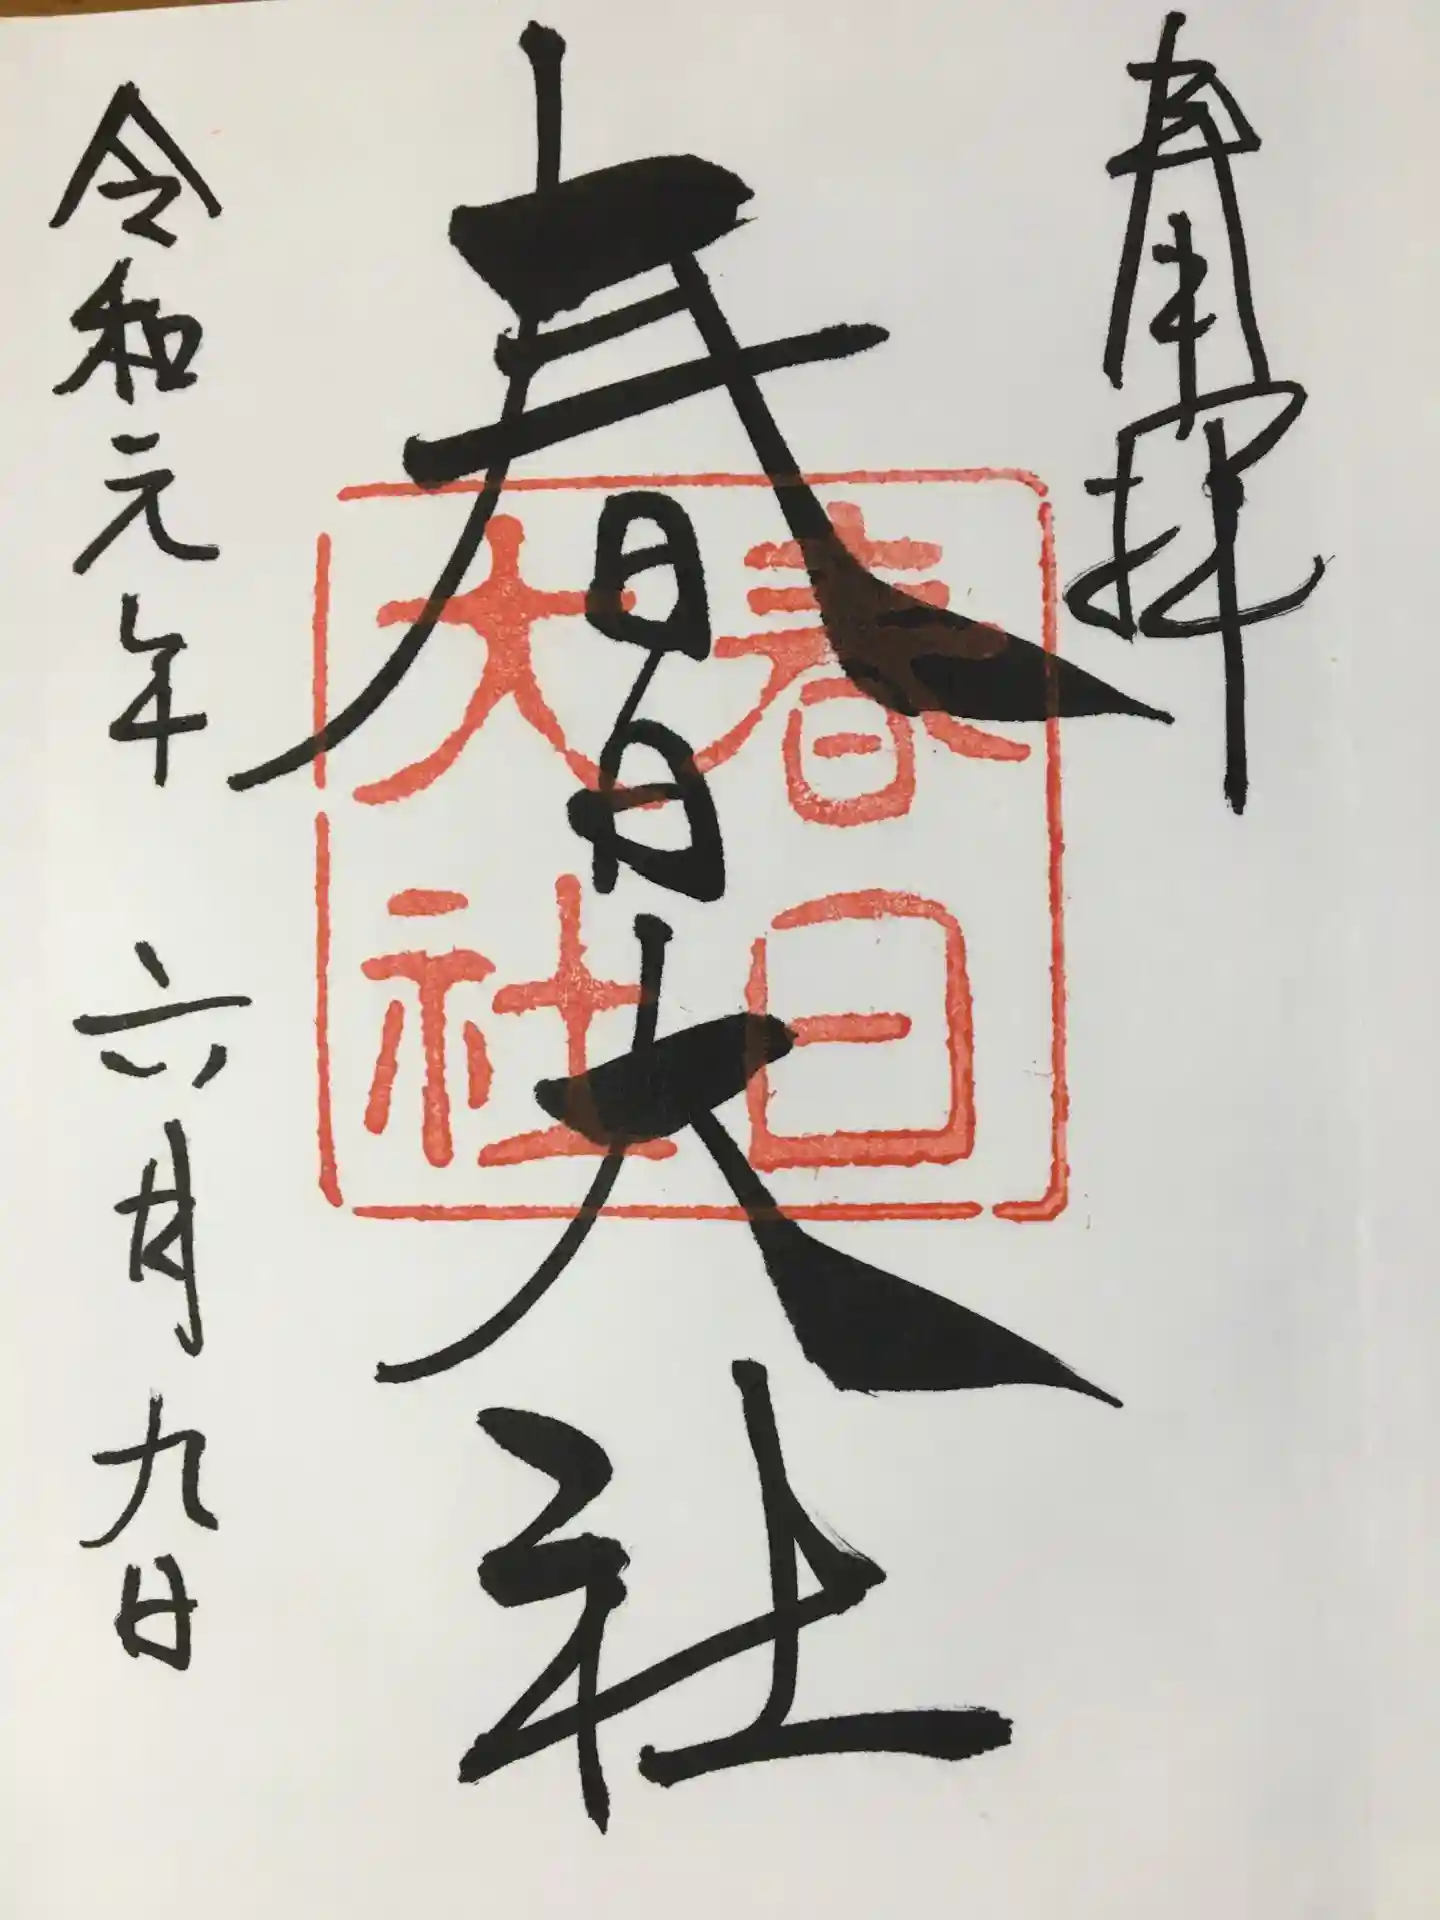 奉拝
春日大社
春日
大社
令和元年 六月九日